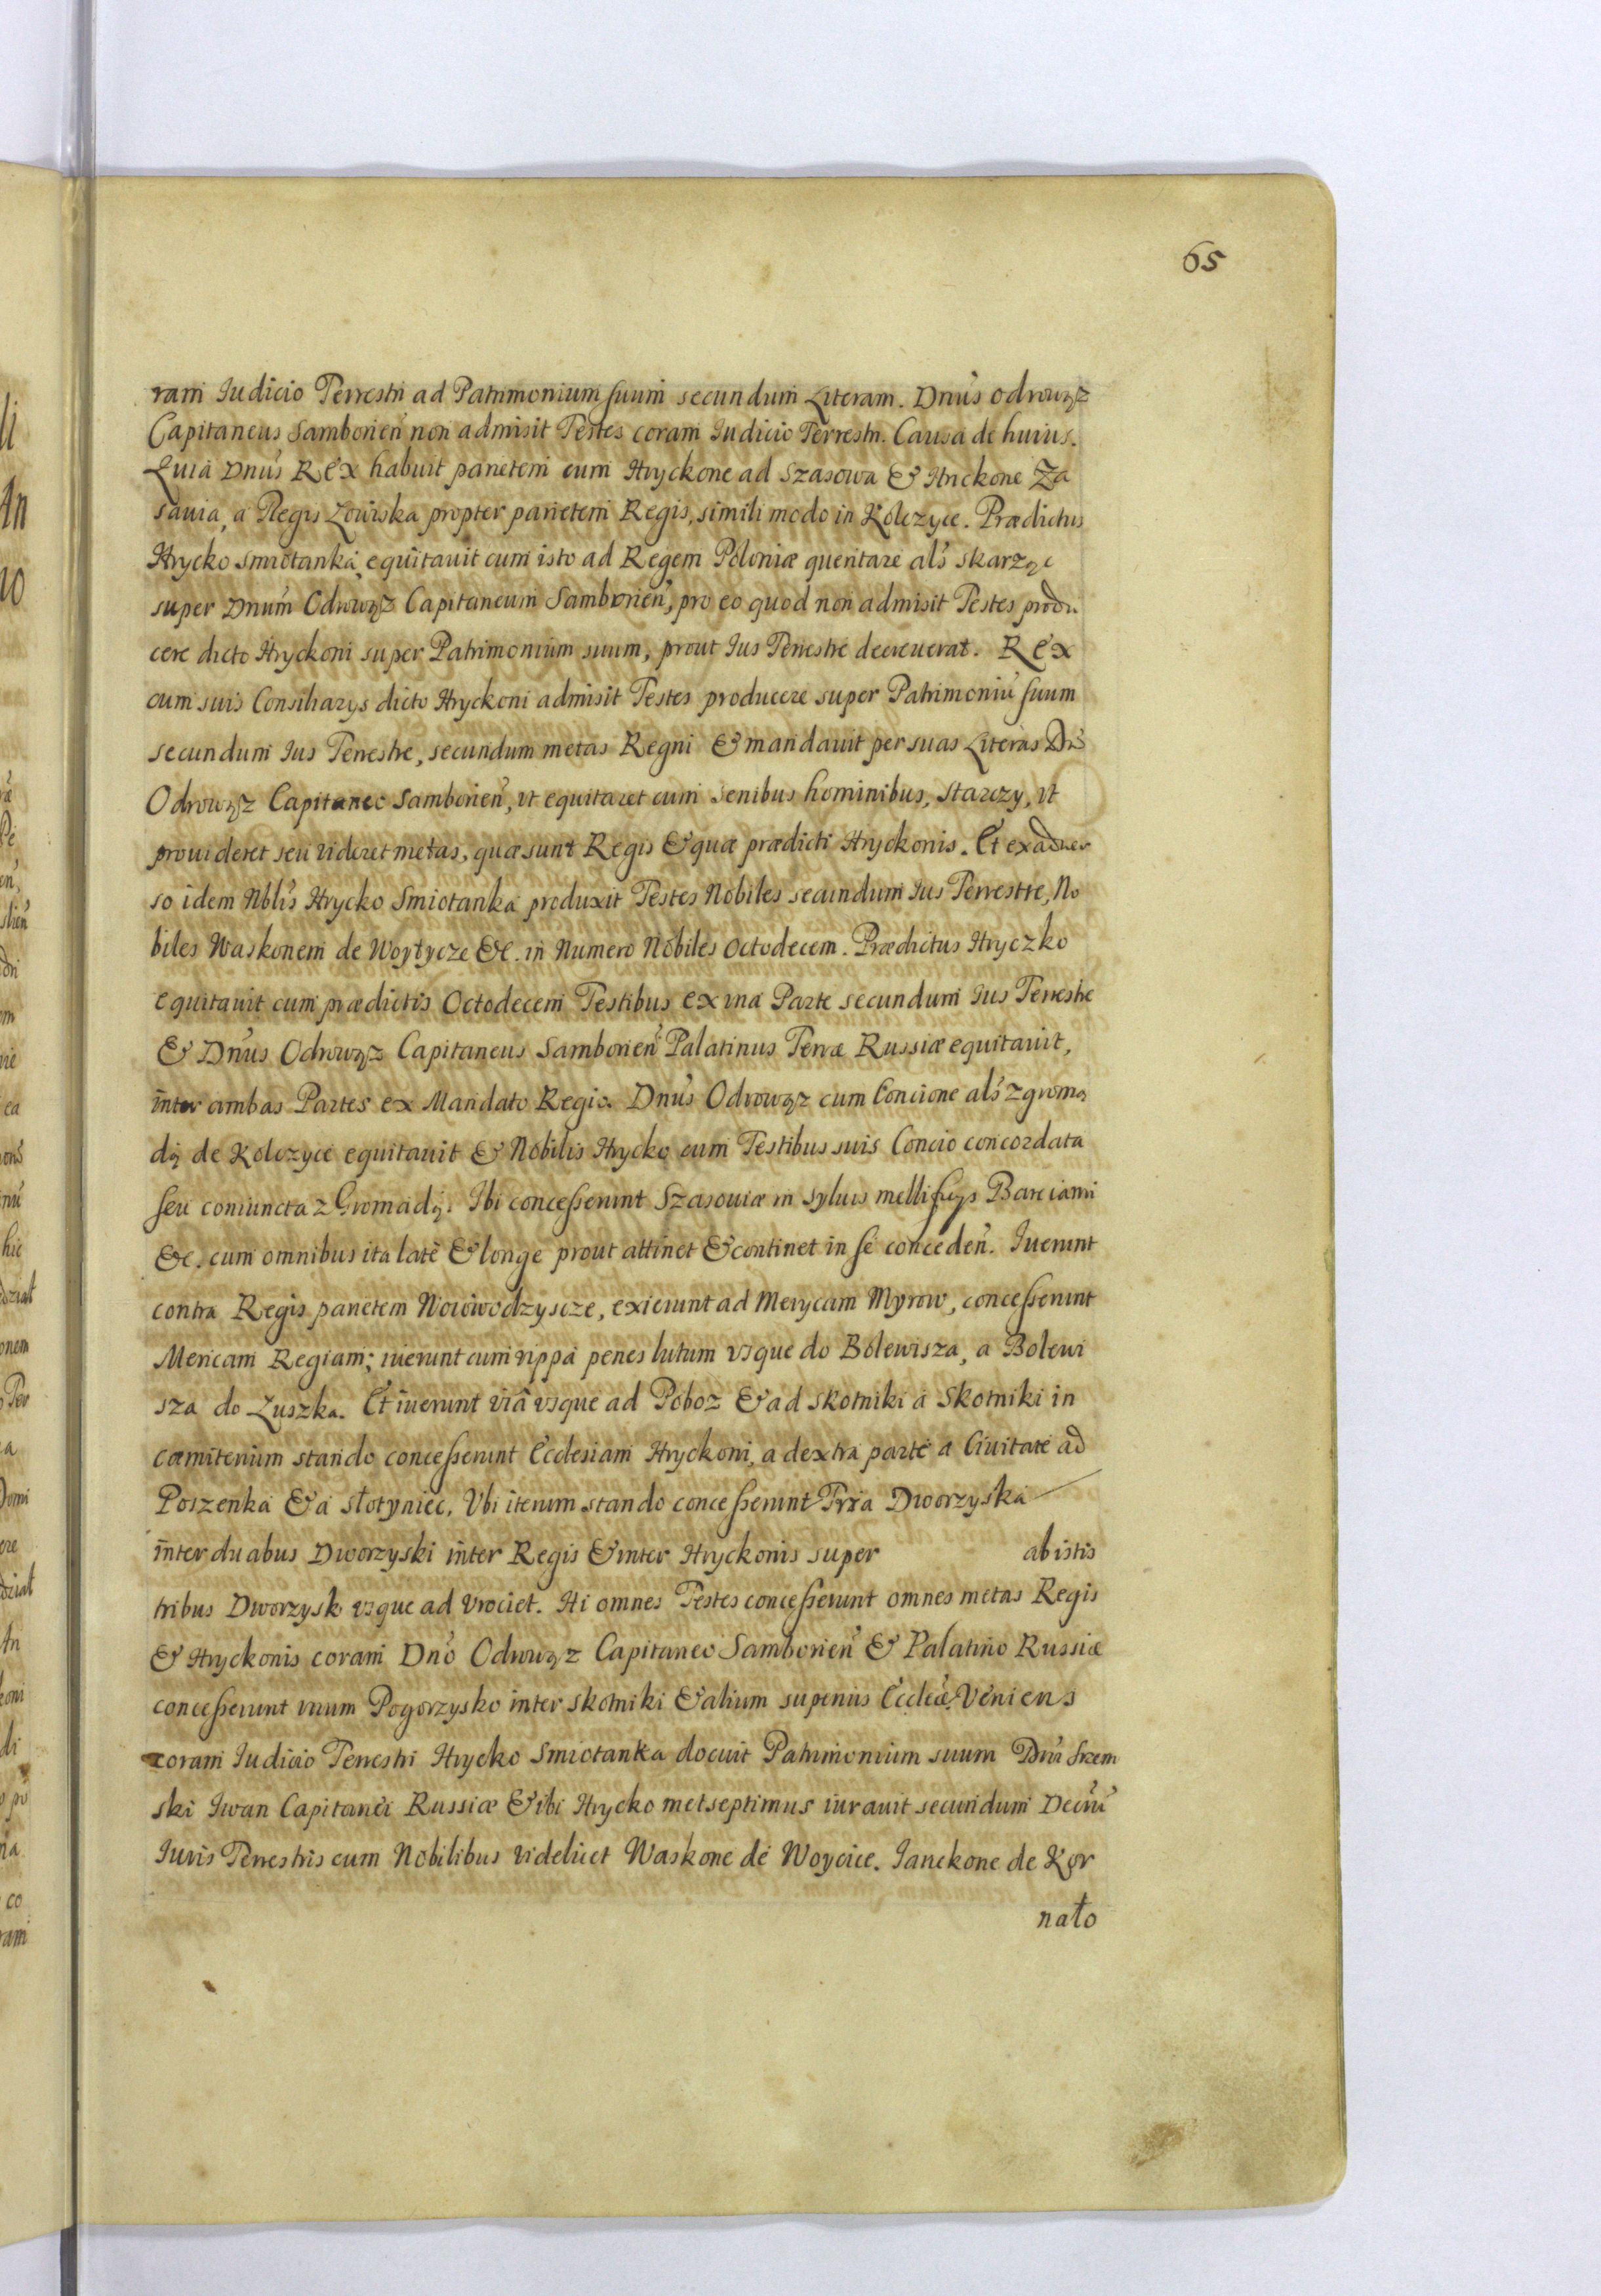 65
ram Iudicio Terrestri ad Patrimonium suum secundum Literam. Dnus Odrowąz
Capitaneus Samborien̄ non admisit Testes coram Iudicio Terrestri. Causa de huius.
Quia Dnus Rex habuit parietem cum Hryckone ad Szasowa & Hrickone Za
savia, a Regis Lowiska propter parietem Regis, simili modo in Kolczyce. Prædictus
Hrycko Smiotanka, equitauit cum isto ad Regem Poloniæ queritare als skarząc
super Dnum Odrowąz Capitaneum Samborien̄, pro eo quod non admisit Testes produ
cere dicto Hryckoni super Patrimonium suum, prout Ius Terrestre decreuerat. Rex
cum suis Consiliarys dicto Hryckoni admisit Testes producere super Patrimoniū suum
secundum Ius Terrestre, secundum metas Regni & mandauit per suas Literas Dno
Odrowąz Capitaneo Samborien̄, vt equitaret cum senibus hominibus, starczy, vt
prouideret seu videret metas, quæ sunt Regis & quæ prædicti Hryckonis. Et ex aduer
so idem Nblis Hrycko Smiotanka produxit Testes Nobiles secundum Ius Terrestre, No
biles Waskonem de Woytycze &c. in Numero Nobiles Octodecem. Prædictus Hryczko
equitauit cum prædictis Octodecem Testibus ex vna Parte secundum Ius Terrestre
& Dnus Odrowąz Capitaneus Samborien̄ Palatinus Terræ Russiæ equitauit,
inter ambas Partes ex Mandato Regio. Dnus Odrowąz cum Concione als z groma
dą de Kolczyce equitauit & Nobilis Hrycko cum Testibus suis Concio concordata
seu coniuncta z Gromadą. Ibi concesserunt Szasouiæ in syluis mellifuys Barciami
&c. cum omnibus ita latè & longe prout attinet & continet in se conceden̄. Iuerunt
contra Regis parietem Nowiwodzyscze, exierunt ad Merycam Myrow, concesserunt
Mericam Regiam; iuerunt cum rippa penes lutum vsque do Bolewisza, a Bolewi
sza do Luszka. Et iuerunt viâ vsque ad Poboz & ad Skotniki a Skotniki in
cæmiterium stando concesserunt Ecclesiam Hryckoni, a dextra parte a Ciuitate ad
Poszenka & a Słotyniec. Vbi iterum stando concesserunt Tria Dworzyska
inter duabus Dworzyski inter Regis & inter Hryckonis super ab istis
tribus Dworzysk vsque ad Vrociet. Hi omnes Testes concesserunt omnes metas Regis
& Hryckonis coram Dno Odrowąz Capitaneo Samborien̄ & Palatino Russiæ
concesserunt vnum Pogorzysko inter Skotniki & alium superius Eccleæ. Veniens
coram Iudicio Terrestri Hrycko Smiotanka docuit Patrimonium suum Dni Srzem
ski Iwan Capitanei Russiæ & ibi Hrycko metseptimus iurauit secundum Decrū
Iuris Terrestris cum Nobilibus videlicet Waskone de Woycice. Ianckone de Kor
nało